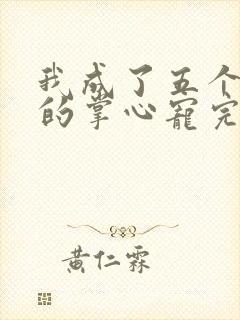 我成了五个
的掌心宠完
黄仁霖